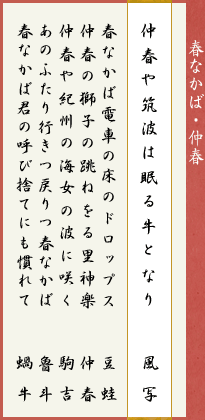 春なかば・仲春
仲春や筑波は眠る牛となり　風写
春なかば電車の床のドロップス　豆蛙
仲春の獅子の跳ねをる里神楽　仲春
仲春や紀州の海女の波に咲く　駒吉
あのふたり行きつ戻りつ春なかば　魯斗
春なかば君の呼び捨てにも慣れて　蝸牛